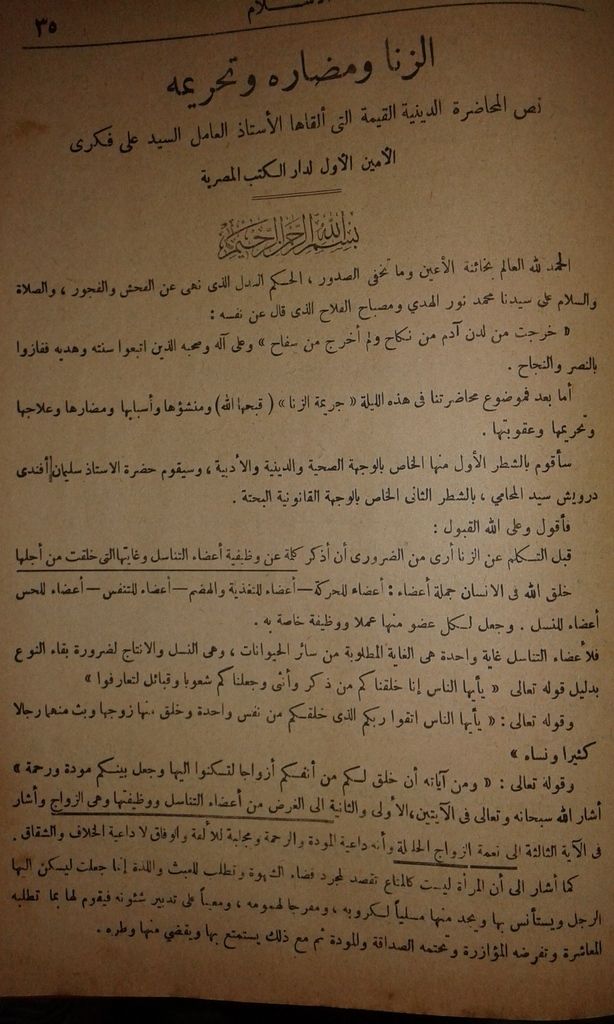 ٣٥
الزنا ومضاره وتحريمه
نص المحاضرة الدينية القيمة التى ألقاها الأستاذ العامل السيد على فكرى
الأمين الأول لدار الكتب المصرية
بسم الله الرحمن الرحيم
الحمد لله العالم بخائنة الأعين وما تخفى الصدور ، الحكيم العدل الذى نهى عن الفحش والفجور ، والصلاة
والسلام على سيدنا محمد نور الهدي ومصباح الفلاح الذى قال عن نفسه :
« خرجت من لدن آدم من نكاح ولم أخرج من سفاح » وعلى آله وصحبه الذين اتبعوا سنته وهديه ففازوا
بالنصر والنجاح .
أما بعد فموضوع محاضرتنا فى هذه الليلة « جريمة الزنا » ( قبحها الله ) ومنشؤها وأسبابها ومضارها وعلاجها
وتحريمها وعقوبتها .
سأقوم بالشطر الأول منها الخاص بالوجهة الصحية والدينية والأدبية ، وسيقوم حضرة الاستاذ سليمان أفندى
درويش سيد المحامي ، بالشطر الثانى الخاص بالوجهة القانونية البحتة .
فأقول وعلى الله القبول :
قبل التكلم عن الزنا أرى من الضرورى أن أذكر كلمة عن وظيفية أعضاء التناسل وغايتها التى خلقت من أجلها
خلق الله فى الانسان جملة أعضاء : أعضاء للحركة — أعضاء للتغذية والهضم — أعضاء للتنفس — أعضاء للحس
أعضاء للنسل . وجعل لكل عضو منها عملا ووظيفة خاصة به .
فلأعضاء التناسل غاية واحدة هى الغاية المطلوبة من سائر الحيوانات ، وهى النسل والانتاج لضرورة بقاء النوع
بدليل قوله تعالى « يأيها الناس إنا خلقناكم من ذكر وأنثى وجعلناكم شعوبا وقبائل لتعارفوا »
وقوله تعالى : « يأيها الناس اتقوا ربكم الذى خلقكم من نفس واحدة وخلق منها زوجها وبث منهما رجالا
كثيرا ونساء »
وقوله تعالى : « ومن آياته أن خلق لكم من أنفسكم أزواجا لتسكنوا اليها وجعل بينكم مودة ورحمة »
أشار الله سبحانه وتعالى فى الآيتين الأولى والثانية الى الغرض من أعضاء التناسل ووظيفتها وهى الزواج وأشار
فى الآية الثالثة الى نعمة الزواج الحلالة وأنه داعية المودة والرحمة ومجلبة للألفة والوفاق لا داعية الخلاف والشقاق .
كما أشار الى أن المرأة ليست كالمتاع تقصد لمجرد قضاء الشهوة وتطلب للعبث واللذة إنما جعلت ليسكن اليها
الرجل ويستأنس بها ويجد منها مسلياً لكروبه ، ومفرجا لهمومه ، ومعيناً على تدبير شئونه فيقوم لها بما تطلبه
المعاشرة وتفرضه المؤازرة وتحتمه الصداقة والمودة ثم مع ذلك يستمتع بها ويقضي منها وطره .